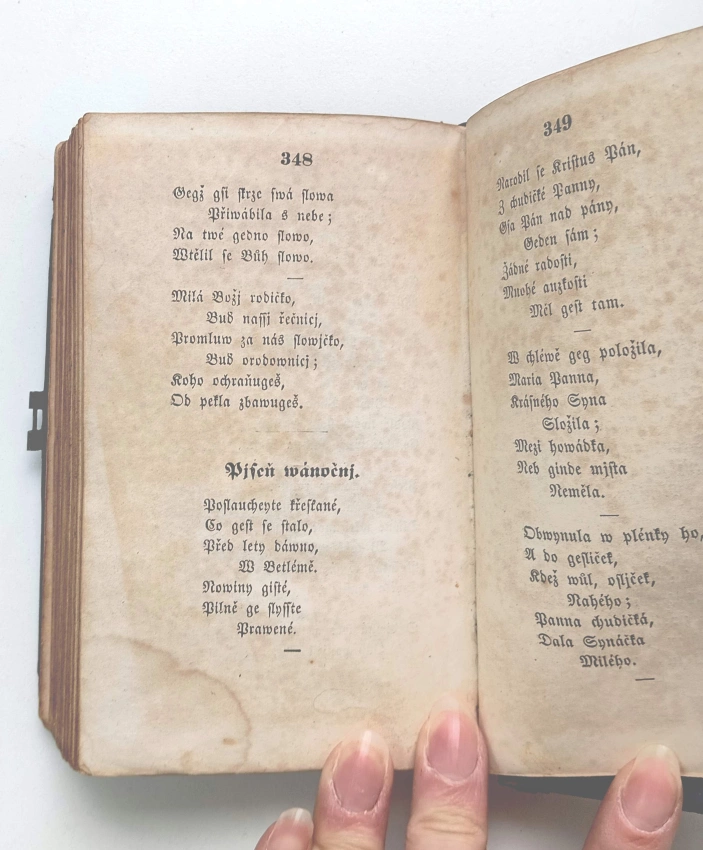 348
Gegž gsi skrze swá slowa
Přiwábila s nebe;
Na twé gedno slowo,
Wtělil se Bůh slowo.
Milá Božj rodičko,
Buď nassj řečnicj,
Promluw za nás slowjčko,
Buď orodownicj;
Koho ochraňugeš,
Od pekla zbawugeš.
Pjseň wánočnj.
Poslaucheyte křeskané,
Co gest se stalo,
Před lety dáwno,
W Betlémě.
Nowiny gisté,
Pilně ge slysste
Prawené.
349
Narodil se Kristus Pán,
Z chudičké Panny,
Gsa Pán nad pány,
Geden sám;
Žádné radosti,
Mnohé auzkosti
Měl gest tam.
W chléwě geg položila,
Maria Panna,
Krásného Syna
Složila;
Mezi howádka,
Neb ginde mjsta
Neměla.
Obwynula w plénky ho,
A do gesliček,
Kdež wůl, osljček,
Nahého;
Panna chudičká,
Dala Synáčka
Milého.